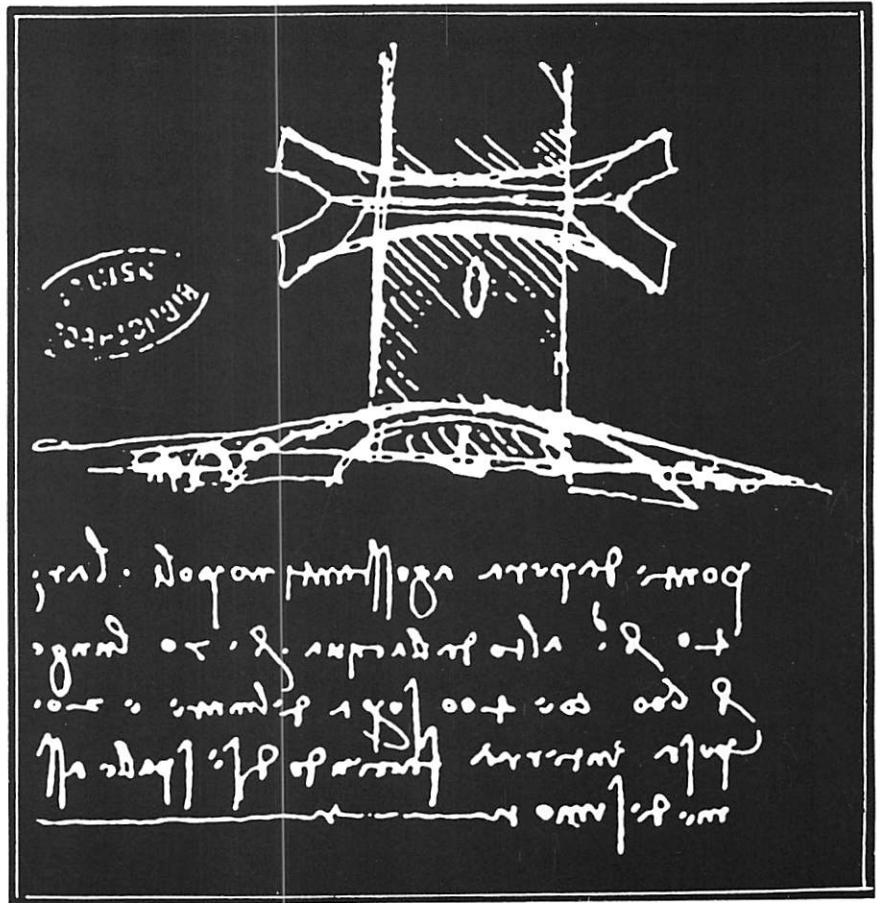 ponte da pera a gosstantinopoli . lar
go 40 br alto dallacqua br 70 lungo
br 600 coe 400 sopra del mare e 200
posa in terra faciendo di se spalle a sse
medesimo